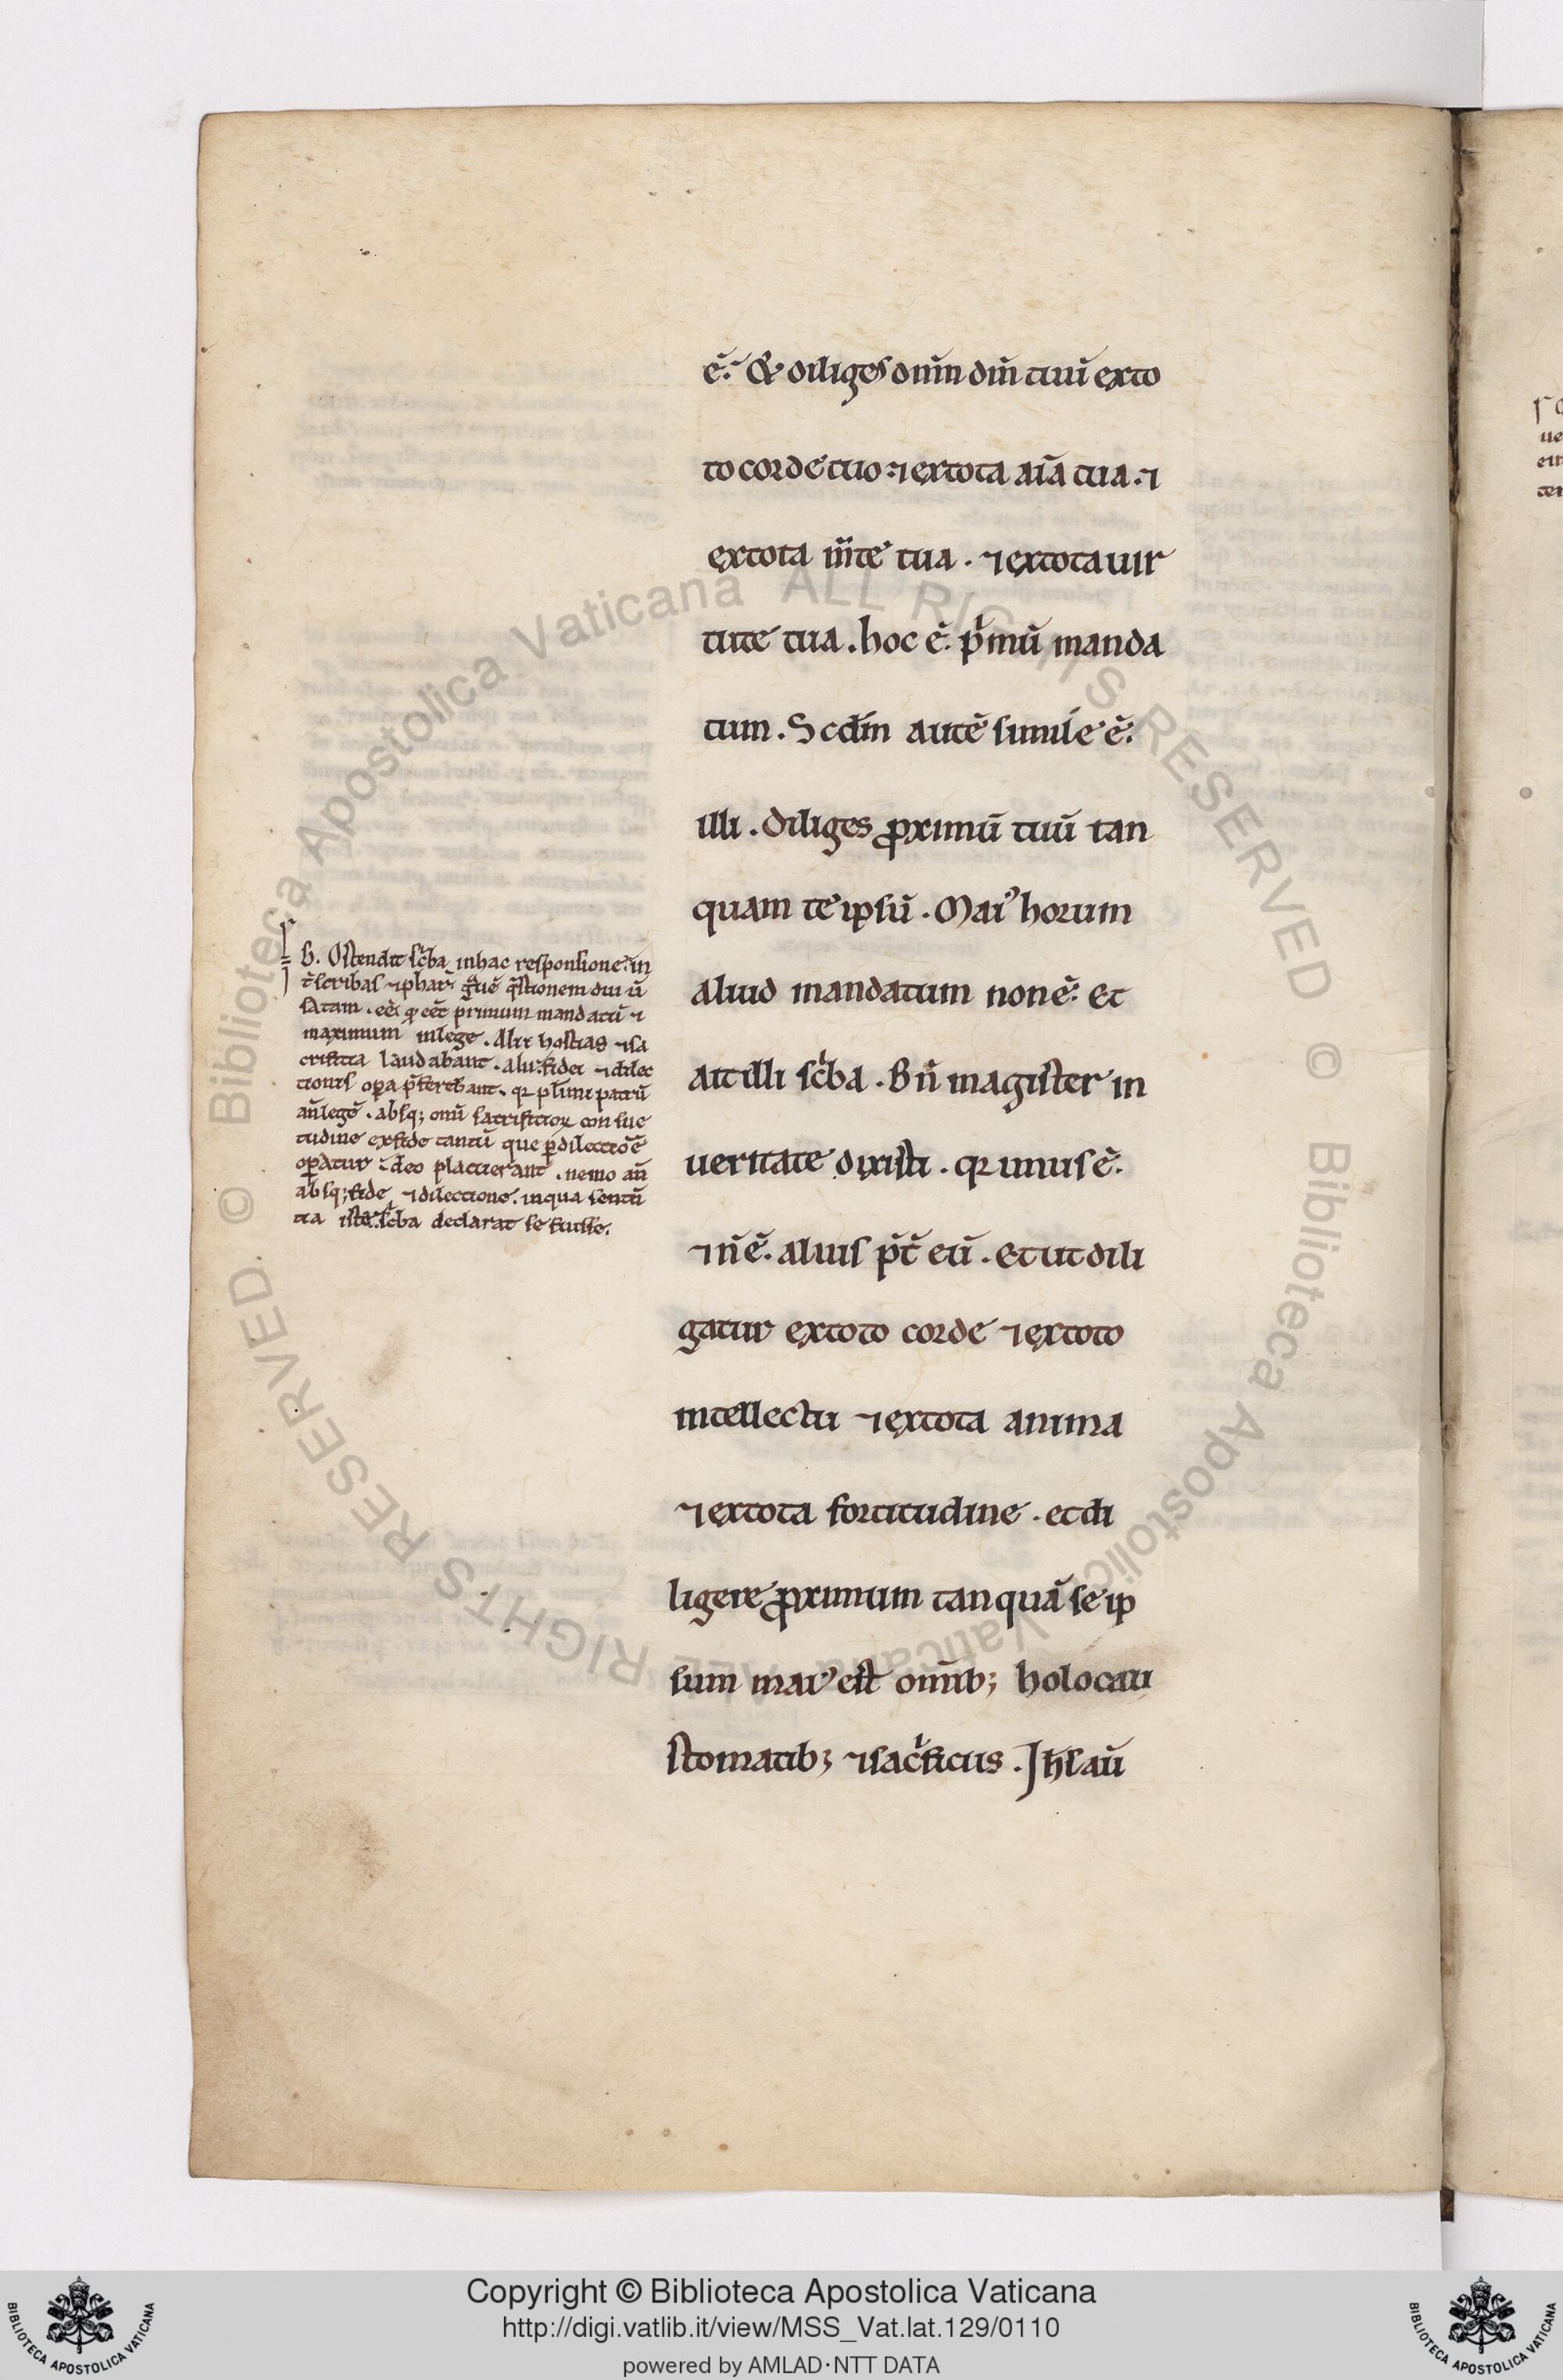 ē. & diliges dnm̄ dm̄ tuū exto
to corde tuo. ⁊ extota aīa tua. ⁊
extota m̄te tua. ⁊ extota uir
tute tua. hoc ē. pͥmū manda
tum. Scd̄m autē simile ē.
illi. diliges ꝓximū tuū tan
quam te ip̄sū. Maiꝰ horum
aliud mandatum non ē. Et
ait illi scͥba. Bn̄ magister in
ueritate dixisti. qꝛ unus ē.
⁊ n̄ ē. alius p̄t̄ eū. Et ut dili
gatur extoto corde ⁊ extoto
intellectu ⁊ extota anima
⁊ extota fortitudine. et di
ligere ꝓximum tanquā se ip
sum maiꝰ est om̄ib; holocau
stomatib; ⁊ sacͥficiis. Ihs̄ aū
b. Ostendit scͥba inhac responsione. in
t̄ scribas ⁊ phar̄ gͣuē q̄stionem diu ū
satam. eē. qͩ eēt primum mandatū ⁊
maximum inlege. Alii hostias ⁊ sa
crificia laudabant. alii fidei ⁊ dilec
tionis opa p̄ferebant. qꝛ pl̄imi patrū
an̄ legē. absq; omī sacrificioꝝ consue
tudine ex fide tantū que ꝑ dilectiōē
opatur. deo placuerant. nemo aū
absq; fide ⁊ dilectione. inqua sentn̄
tia iste. scͥba declarat se fuisse.
Copyright © Biblioteca Apostolica Vaticana
http://digi.vatlib.it/view/MSS_Vat.lat.129/0110
powered by AMLAD·NTT DATA
BIBLIOTECA APOSTOLICA VATICANA
BIBLIOTECA APOSTOLICA VATICANA
© Biblioteca Apostolica Vaticana ALL RIGHTS RESERVED
© Biblioteca Apostolica Vaticana ALL RIGHTS RESERVED